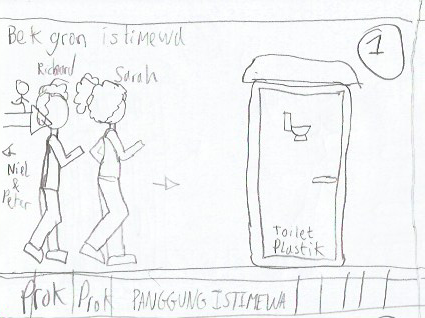 Bek gron istimewa
1
Richard
Sarah
Niel
&
Peter
Toilet
Plastik
Prok Prok PANGGUNG ISTIMEWA